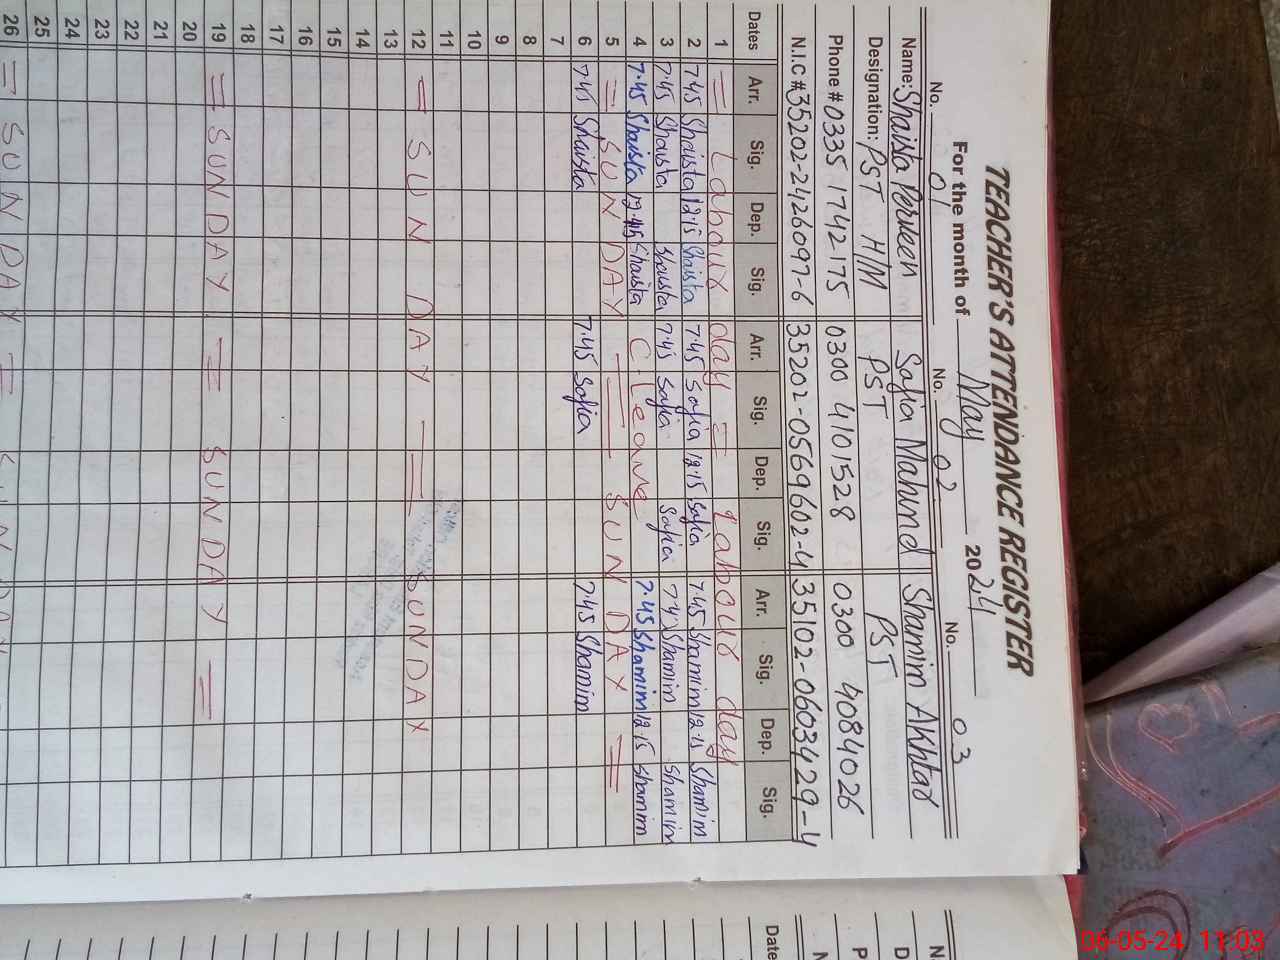 TEACHER'S ATTENDANCE REGISTER
For the month of May 2024
No. 01 No. 02 No. 03
Name: Shaista Perveen Safia Mahmd Shamim Akhtar
Designation: PST H/M PST PST
Phone # 0335 1742175 0300 4101528 0300 4084026
N.I.C # 35202-2426097-6 35202-0569602-4 35102-0603429-4
Dates Arr. Sig. Dep. Sig. Arr. Sig. Dep. Sig. Arr. Sig. Dep. Sig.
1 = Labour day = Labour day
2 7.45 Shaista 12.15 Shaista 7.45 Safia 12.15 Safia 7.45 Shamim 12.15 Shamim
3 7.45 Shaista Shaista 7.45 Safia Safia 7.45 Shamim Shamim
4 7.45 Shaista 12.15 Shaista C.Leave 7.45 Shamim 12.15 Shamim
5 = SUNDAY = SUNDAY =
6 7.45 Shaista 7.45 Safia 7.45 Shamim
7
8
9
10
11
12 = SUNDAY = SUNDAY
13
14
15
16
17
18
19 = SUNDAY = SUNDAY =
20
21
22
23
24
25
26 = SUNDAY =
Date
06-05-24 11:03